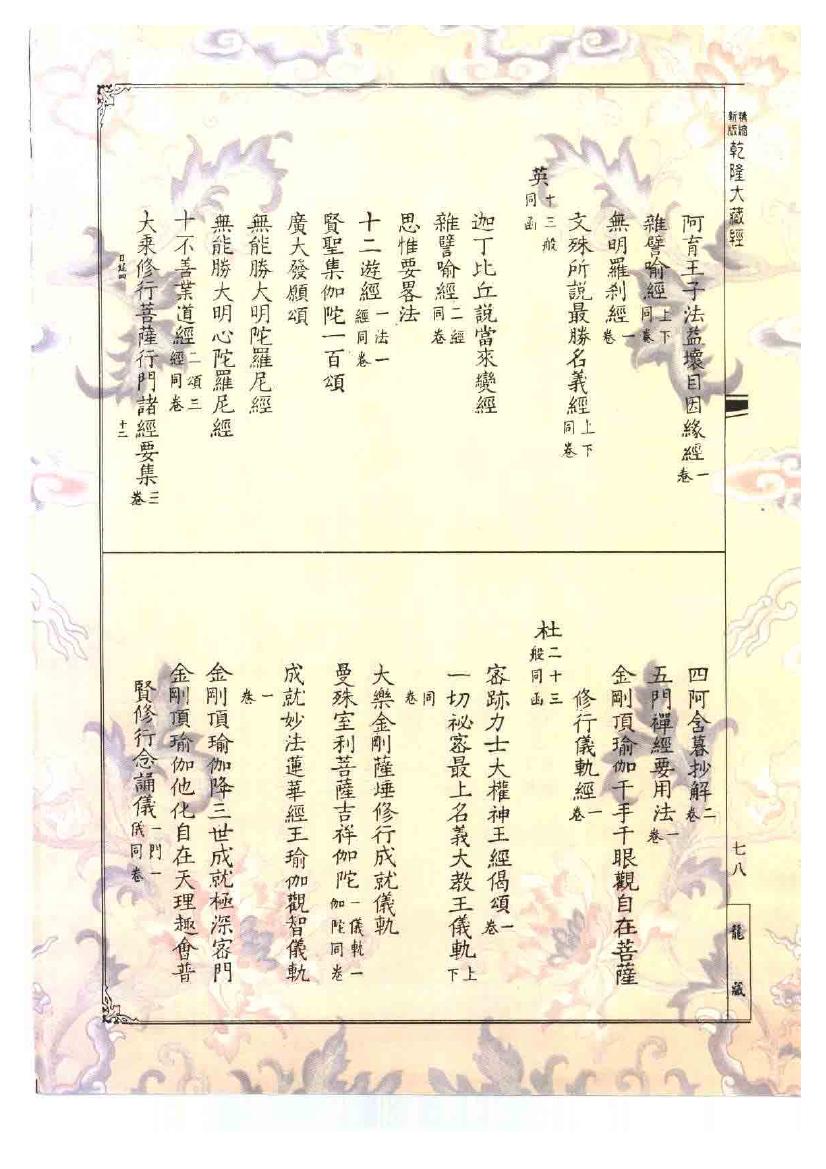 精縮新版 乾隆大藏經
阿育王子法益壞目因緣經一卷
雜譬喻經上下同卷
無明羅刹經一卷
文殊所說最勝名義經上下同卷
英十三般同函
迦丁比丘說當來變經
雜譬喻經二經同卷
思惟要畧法
十二遊經一法一經同卷
賢聖集伽陀一百頌
廣大發願頌
無能勝大明陀羅尼經
無能勝大明心陀羅尼經
十不善業道經二頌三經同卷
大乘修行菩薩行門諸經要集三卷
目錄四
十二
四阿含暮抄解二卷
五門禪經要用法一卷
金剛頂瑜伽千手千眼觀自在菩薩
修行儀軌經一卷
杜二十三般同函
密跡力士大權神王經偈頌一卷
一切祕密最上名義大教王儀軌上下
同卷
大樂金剛薩埵修行成就儀軌
曼殊室利菩薩吉祥伽陀一儀軌一伽陀同卷
成就妙法蓮華經王瑜伽觀智儀軌
一卷
金剛頂瑜伽降三世成就極深密門
金剛頂瑜伽他化自在天理趣會普
賢修行念誦儀一門一儀同卷
七八
龍藏